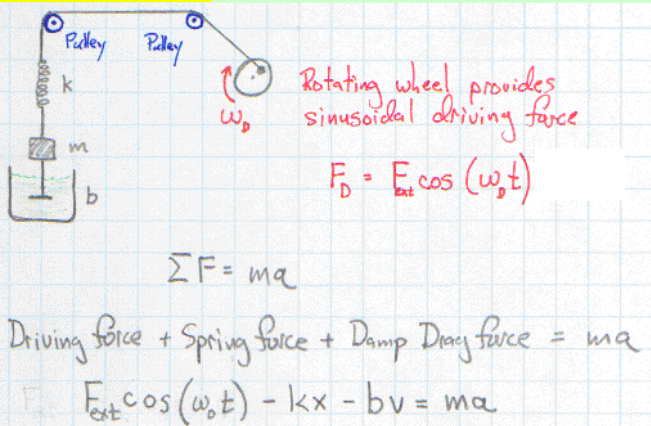 Pulley Pulley
k
Rotating wheel provides
ω_D
sinusoidal driving force
m
F_D = F_ext cos (ω_D t)
b
ΣF = ma
Driving force + Spring force + Damp Drag force = ma
F_ext cos (ω_D t) - kx - bv = ma